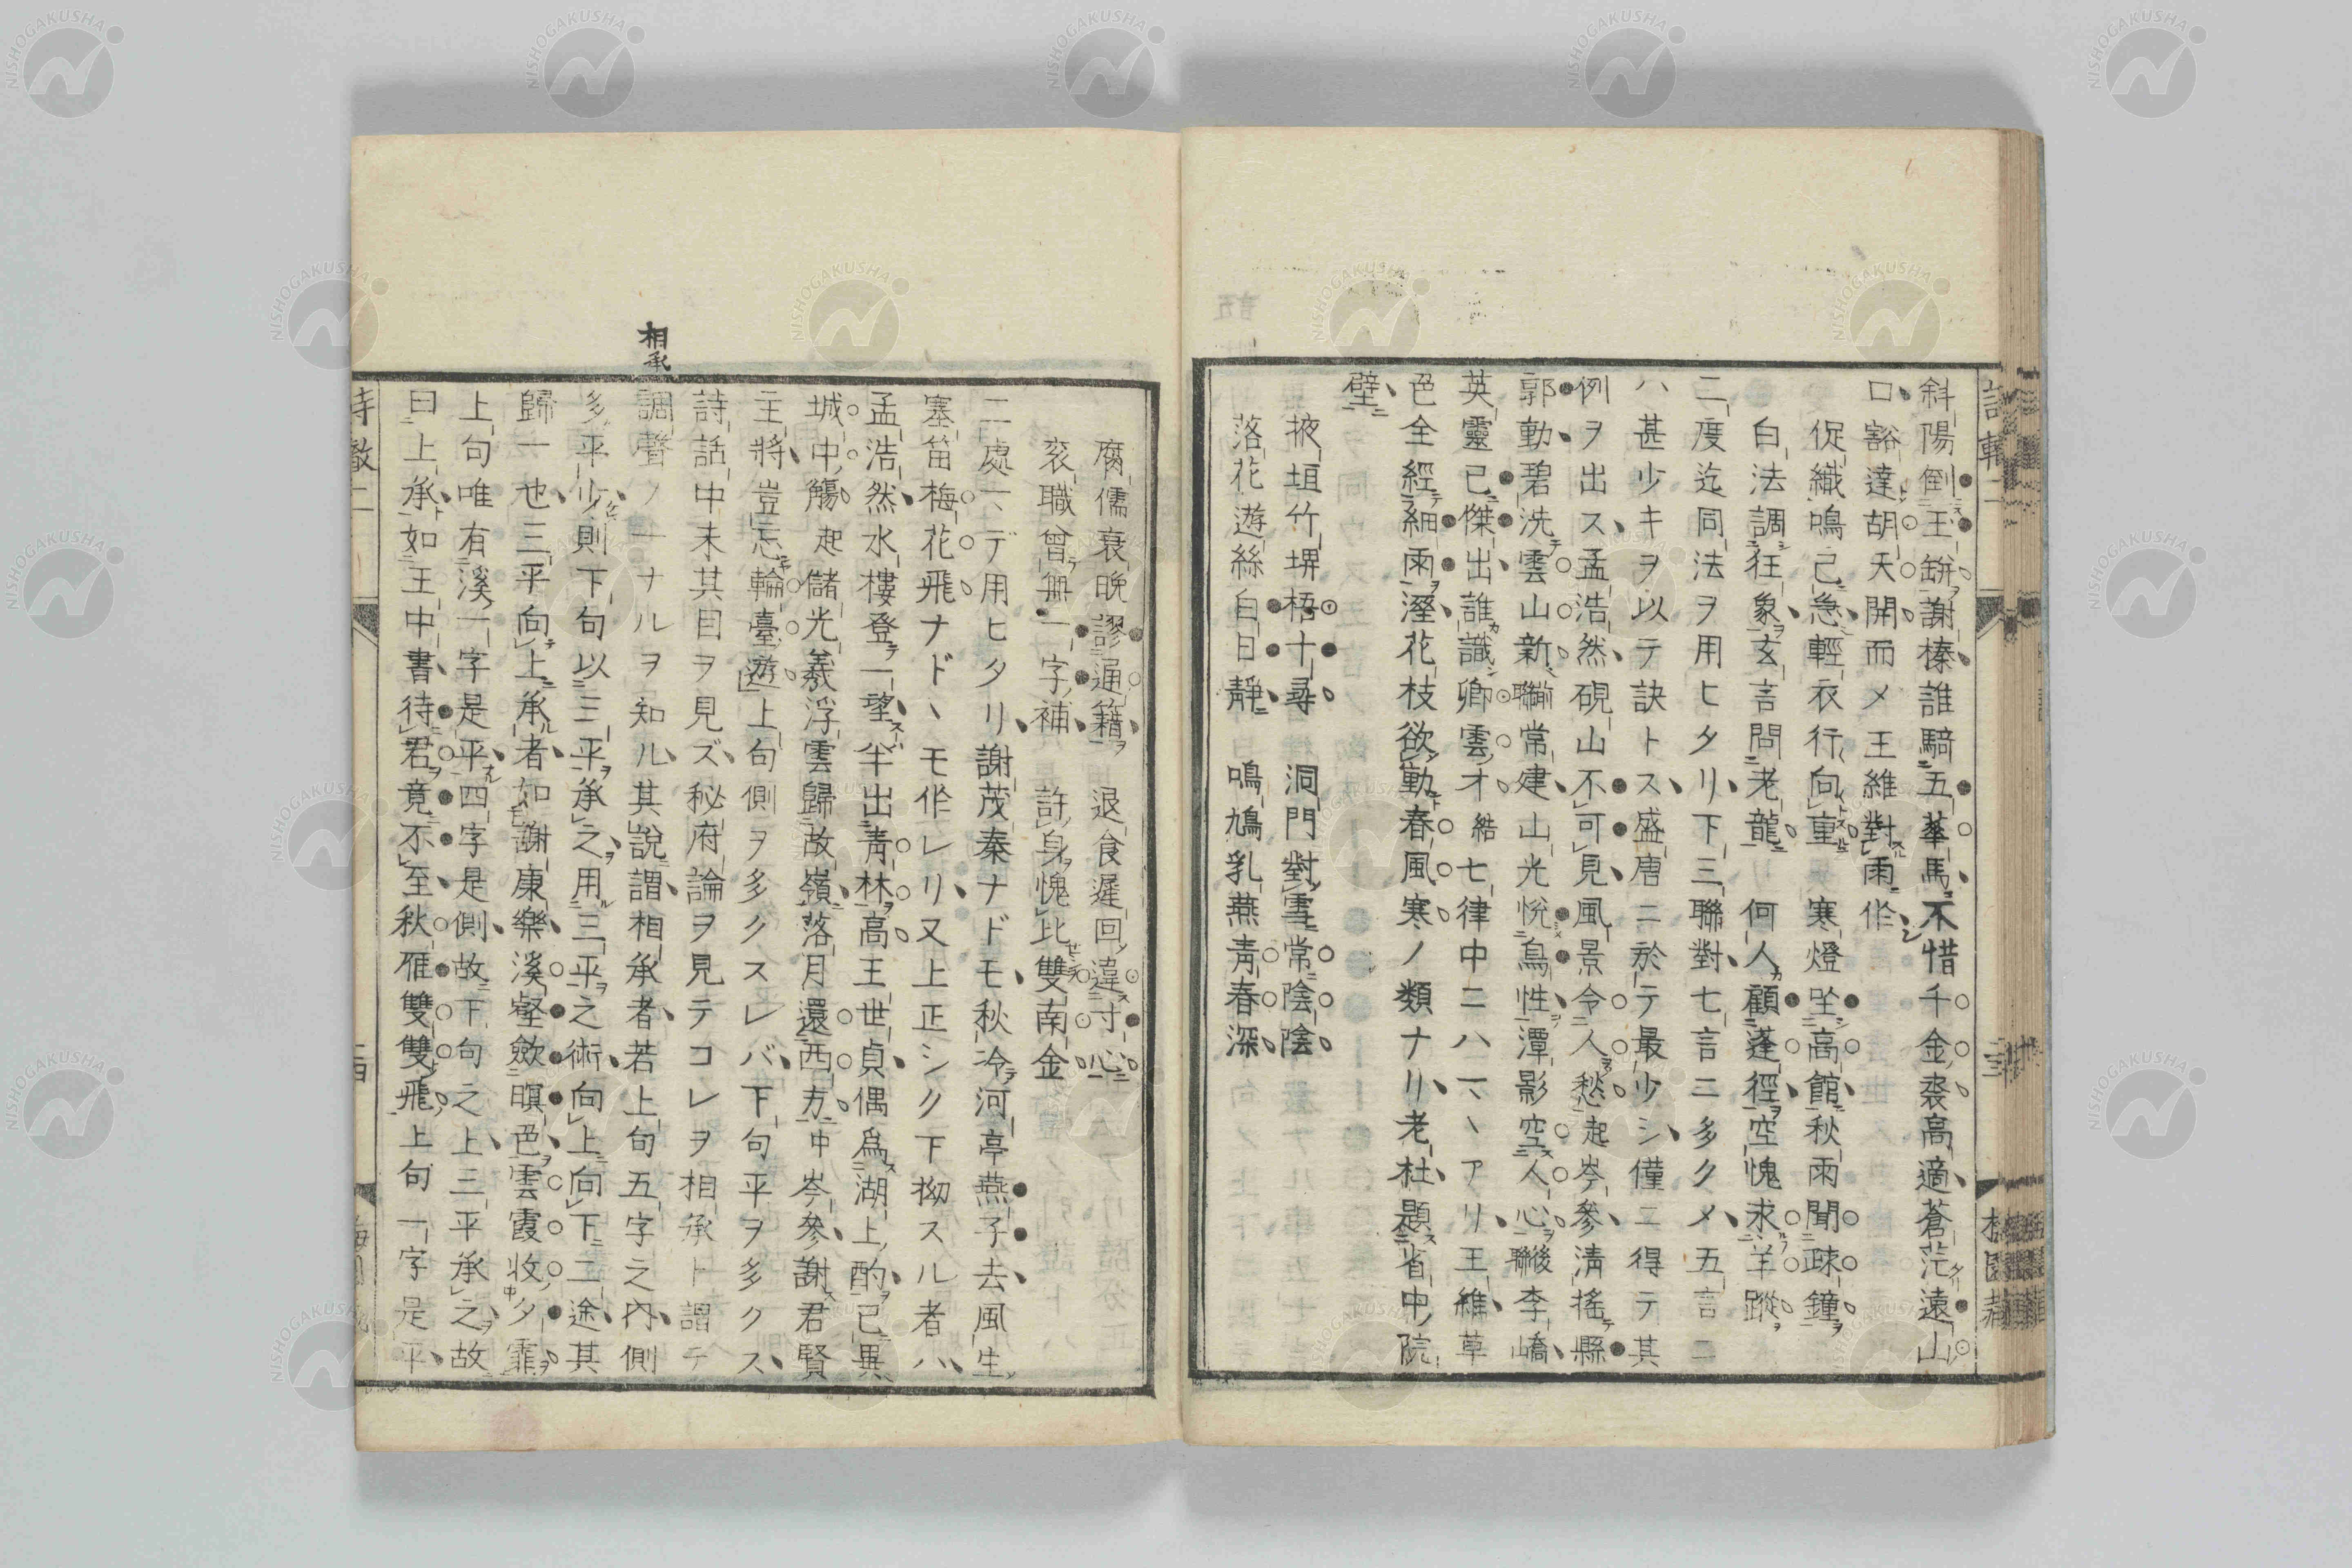 斜陽倒玉缾謝榛誰騎五華馬不惜千金裘高適蒼茫遠山
口豁達胡天開而〆王維對雨作
促織鳴已急輕衣行向重 寒燈坐高館秋雨聞疎鐘
白法調狂象玄言問老龍 何人顧蓬徑空愧求羊蹤
二度迄同法ヲ用ヒタリ下三聯對七言ニ多ク〆五言ニ
ハ甚少キヲ以テ訣トス盛唐ニ於テ最少シ僅ニ得テ其
例ヲ出ス孟浩然硯山不可見風景令人愁起岑參淸搖縣
郭動碧洗雲山新前聯常建山光悅鳥性潭影空人心後聯李嶠
英靈已傑出誰識卿雲才結七律中ニハマヽアリ王維草
色全經細雨溼花枝欲動春風寒ノ類ナリ老杜題省中院
壁
掖垣竹埤梧十尋 洞門對雪常陰陰
落花遊絲白日靜 鳴鳩乳燕靑春深
腐儒衰晚謬通籍 退食遲回違寸心
衮職曾無一字補 許身愧比雙南金
二處マデ用ヒタリ謝茂秦ナドモ秋冷河亭燕子去風生
塞笛梅花飛ナドヽモ作レリ又上正シク下拗スル者ハ
孟浩然水樓登一望半出靑林高王世貞偶爲湖上酌已異
城中觴起儲光羲浮雲歸故嶺落月還西方中岑參謝君賢
主將豈忘輪臺遊上句側ヲ多クスレバ下句平ヲ多クス
詩話中未其目ヲ見ズ秘府論ヲ見テコレヲ相承ト謂テ
相承
調聲ノ一ナルヲ知ル其說謂相承者若上句五字之內側
多平少則下句以三平承之用三平之術向上向下二途其
歸一也三平向上承者如謝康樂溪壑斂暝色雲霞收夕霏
上句唯有溪一字是平四字是側故下句之上三平承之故
曰上承如王中書待君竟不至秋雁雙雙飛上句一字是平